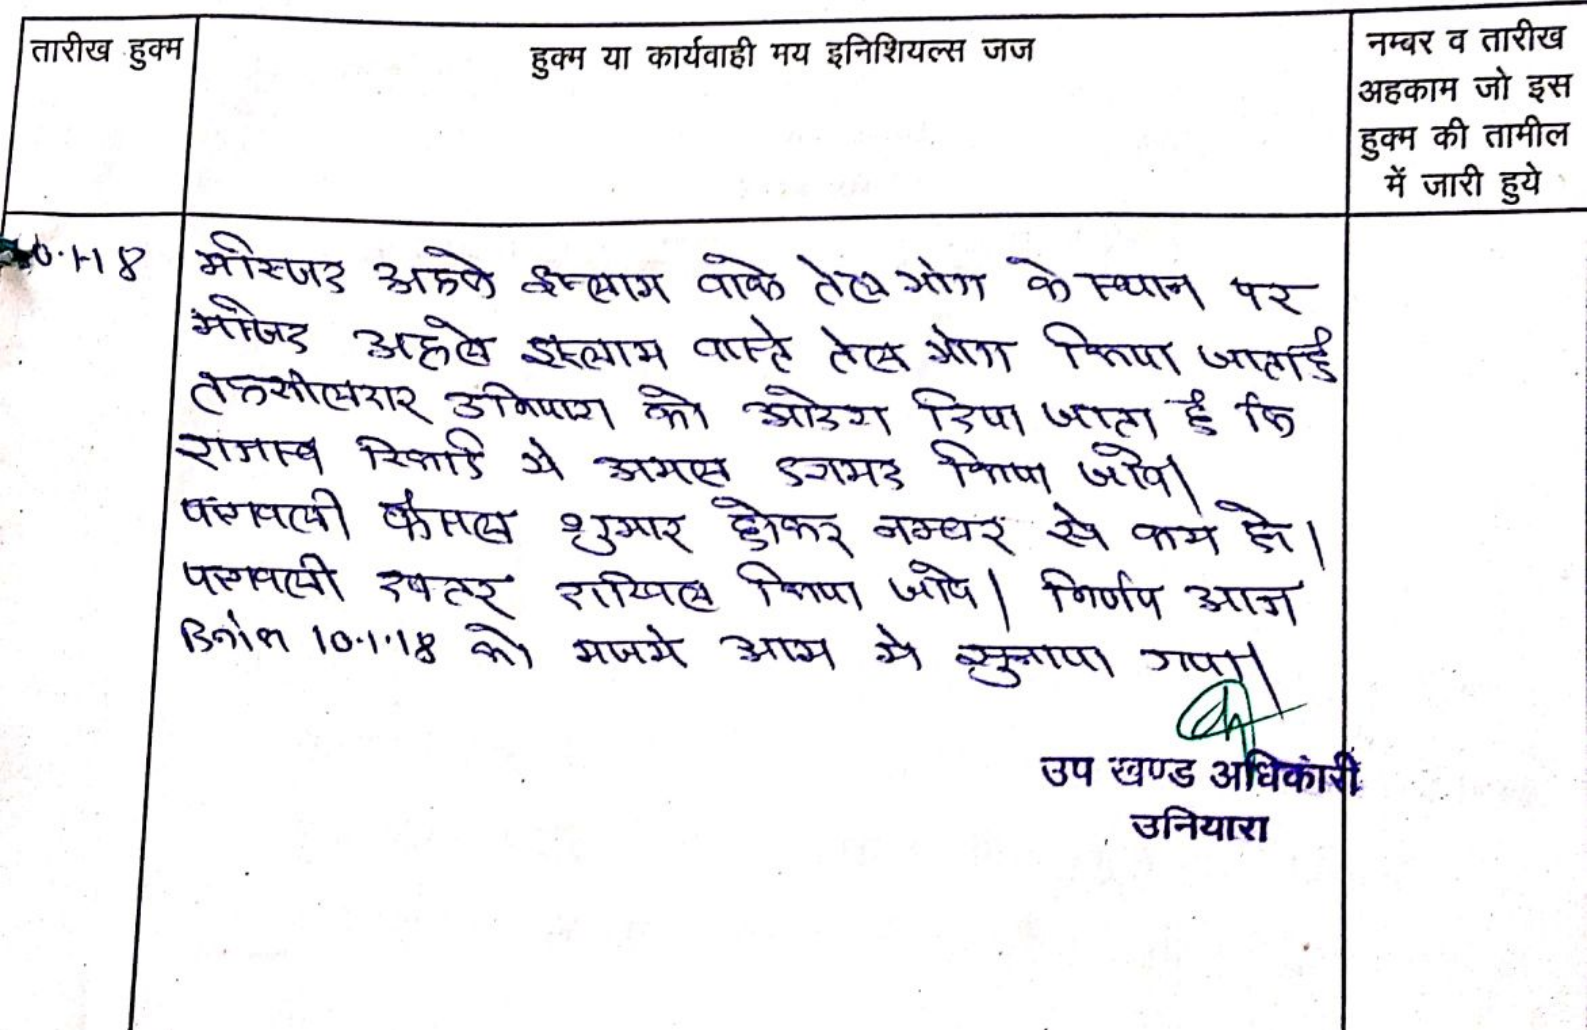 तारीख हुक्म
हुक्म या कार्यवाही मय इनिशियल्स जज
नम्बर व तारीख
अहकाम जो इस
हुक्म की तामील
में जारी हुये
10.1.18
मस्जिद अहले इस्लाम वाके तेल के स्थान पर
मस्जिद अहले इस्लाम वास्ते तेल किया जाता है
तहसीलदार उनियारा को आदेश दिया जाता है कि
राजस्व रिकार्ड मे अमल दरामद किया जावे।
पत्रावली फैसल शुमार होकर नम्बर से कम हो।
पत्रावली दफ्तर दाखिल किया जावे। निर्णय आज
दिनांक 10.1.18 को मजमे आम मे सुनाया गया।
उप खण्ड अधिकारी
उनियारा